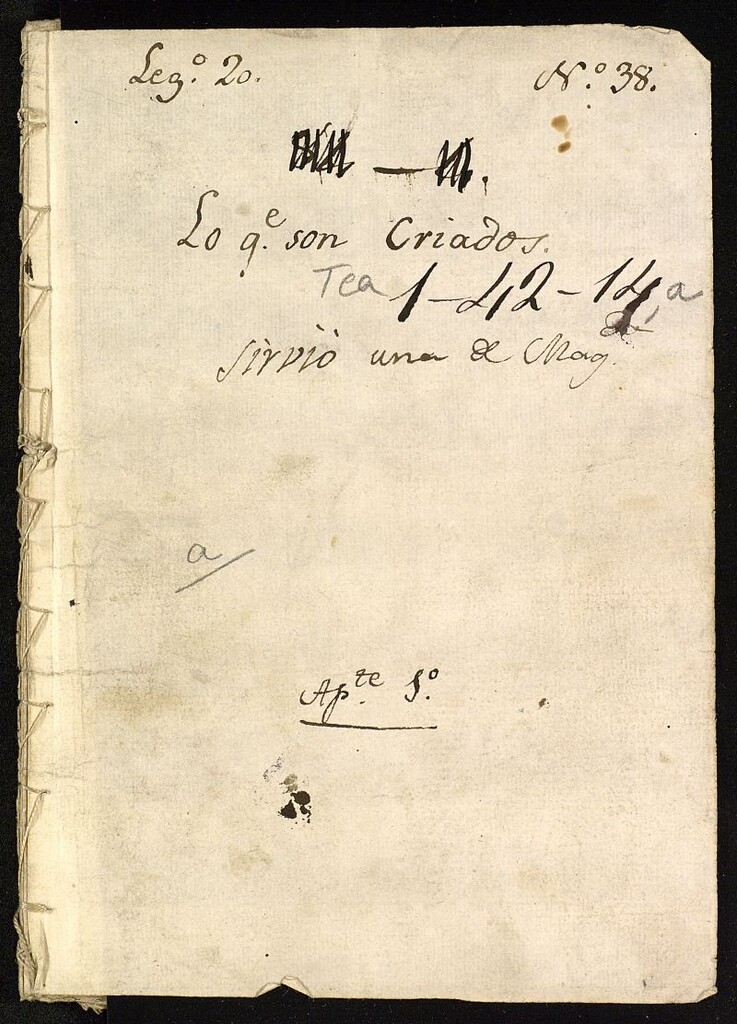 Leg.º 20. N.º 38.
Lo q.e son Criados.
Tea 1-42-14, a
Sirvió una de Mag.da
a
Ap.te 1.º